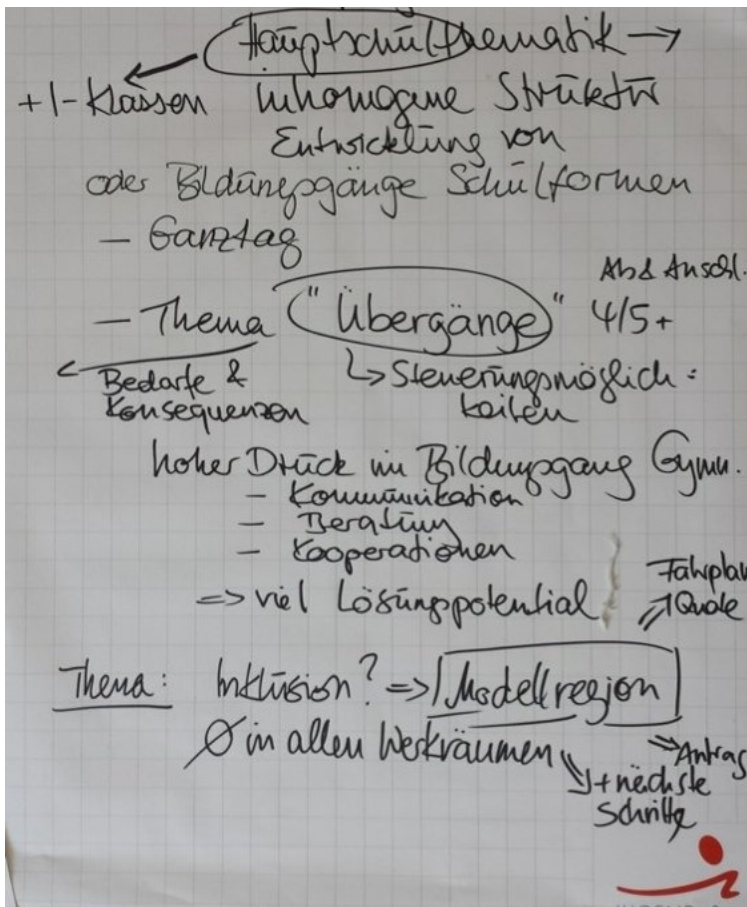 Hauptschulthematik →
+/- Klassen inhomogene Struktur
Entwicklung von
oder Bildungsgänge Schulformen
- Ganztag
Ab & Anschl.
- Thema "Übergänge" 4/5+
Bedarfe & ↳ Steuerungsmöglich =
Konsequenzen keiten
hoher Druck im Bildungsgang Gymn.
- Kommunikation
- Beratung
- Kooperationen
Fahrplan
=> viel Lösungspotential Quote
Thema: Inklusion? => Modellregion
Ø in allen Werkräumen => Antrag
+ nächste
Schritte